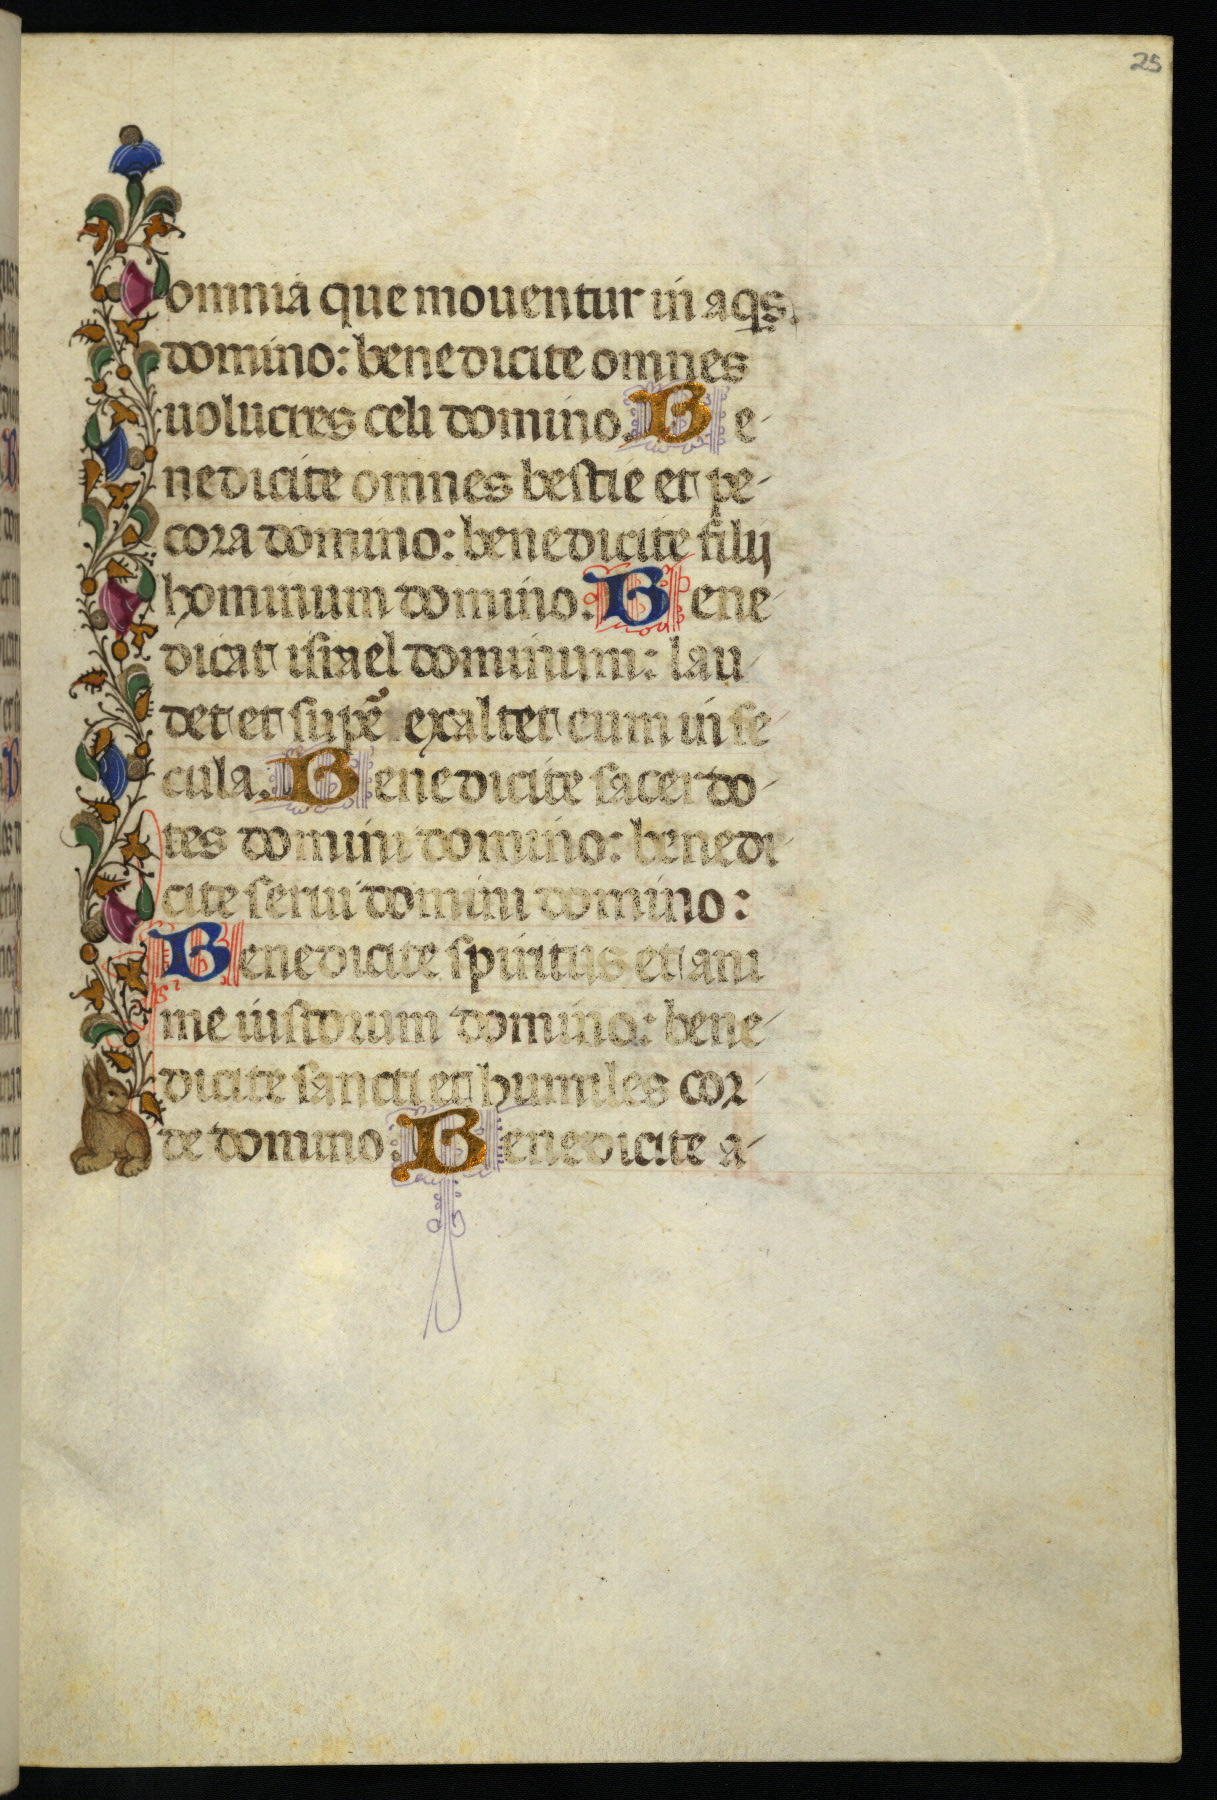 25
omnia que mouentur in aqs.
domino: benedicite omnes
uolucres celi domino. Be-
nedicite omnes bestie et pe-
cora domino: benedicite filij
hominum domino: Bene-
dicat israel dominum: lau-
det et supe᷑ exaltet eum in se-
cula. Benedicite sacerdo-
tes domini domino: benedi-
cite serui domini domino:
Benedicite spiritus et ani
me iustorum domino: bene-
dicite sancti et humiles cor-
de domino: Benedicite a-